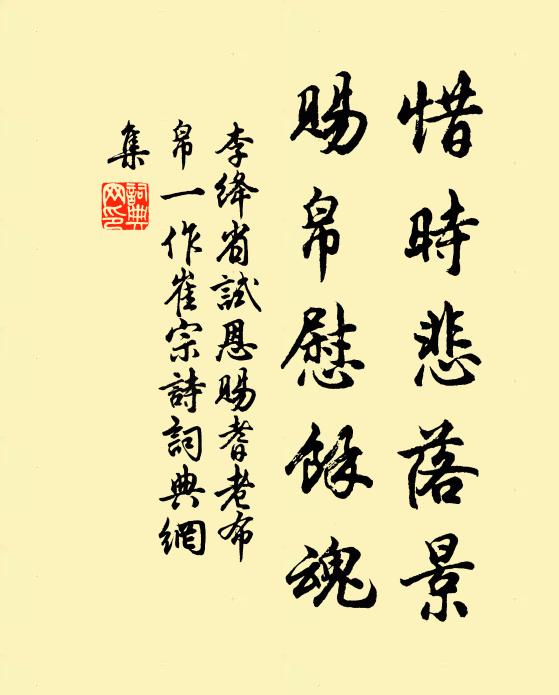 惜時悲落景
賜帛慰餘魂
李絳省試恩賜耆老布
帛一作崔宗詩詞典網
集
詞典網印